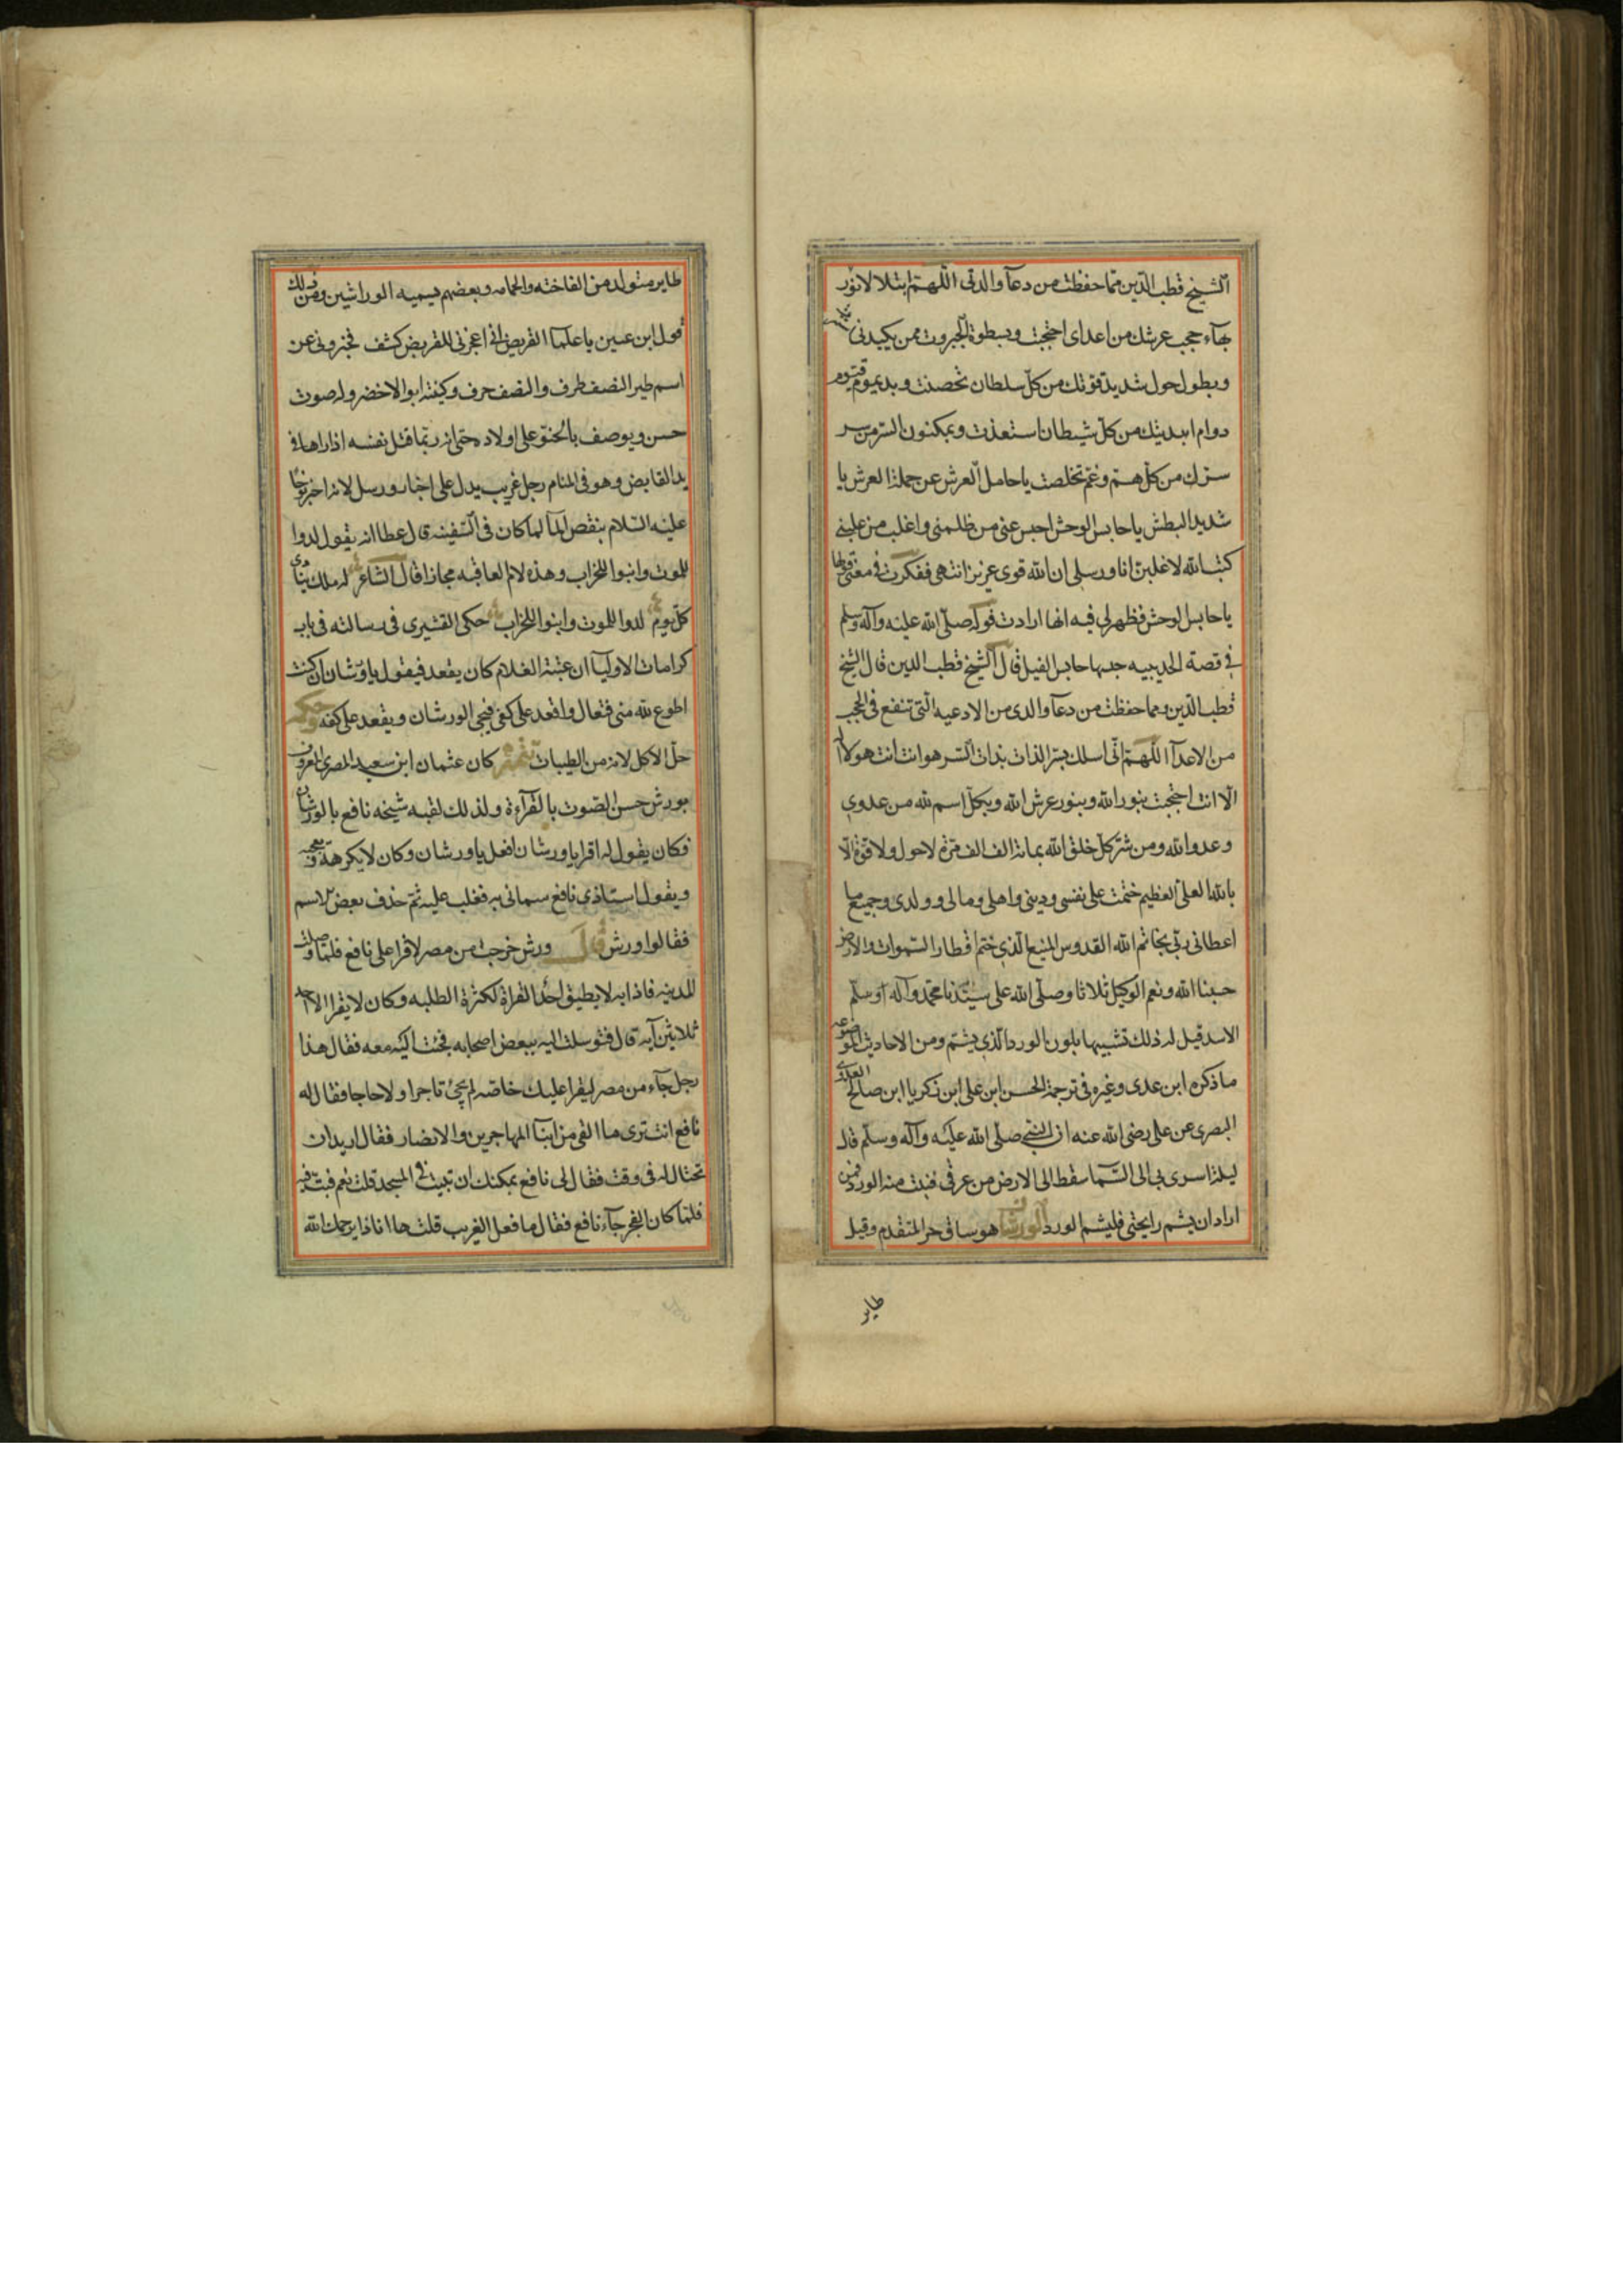 الشيخ قطب الدين مما حفظت من دعآ والدتى اللهم بتلالا نور
بهآء حجب عرشك من اعداى احتجبت وبسطوة الجبروت ممن يكيدنى
وبطول حول شديد قوتك من كل سلطان تحصنت وبديموم قيوم
دوام ابديتك من كل شيطان استعذت وبمكنون السر من سر
سرك من كل هم وغم تخلصت يا حامل العرش عن حملة العرش يا
شديد البطش يا حابس الوحش احبس عنى من ظلمنى واغلب من غلبنى
كتب الله لاغلبن انا ورسلى ان الله قوى عزيز انتهى ففكرت فى معنى قولها
يا حابس الوحش فظهر لى فيه انها ارادت قوله صلى الله عليه وآله وسلم
فى قصة الحديبيه حبسها حابس الفيل قال الشيخ قطب الدين قال الشيخ
قطب الدين ومما حفظت من دعآ والدى من الادعيه التى تنفع فى الحجب
من الاعدآ اللهم انى اسلك بسر الذات بذات السر هو انت انت هو لا اله
الا انت احتجبت بنور الله وبنور عرش الله وبكل اسم لله من عدوى
وعدو الله ومن شر كل خلق الله بمائة الف الف مرة لا حول ولا قوة الا
بالله العلى العظيم ختمت على نفسى ودينى واهلى ومالى وولدى وجميع ما
اعطانى ربى بخاتم الله القدوس المنيع الذى ختم اقطار السموات والارض
حسبنا الله ونعم الوكيل ثلاثا وصلى الله على سيدنا محمد وآله وسلم
الاسد قيل له ذلك تشبيها بلون الورد الذى يشم ومن الاحاديث الموضوعه
ما ذكره ابن عدى وغيره فى ترجمة الحسن ابن على ابن زكريا ابن صالح العدوى
البصرى عن على رضى الله عنه ان النبى صلى الله عليه وآله وسلم قال
ليلة اسرى بى الى السما سقط الى الارض من عرقى فنبت منه الورد فمن
اراد ان يشم رايحتى فليشم الورد الورشان هو ساق حر المتقدم وقيل
طاير
طاير متولد من الفاخته والحمامه وبعضهم يسميه الوراشين ومن ذلك
قول ابن عنين يا علمآ القريض انى اعجزنى للقريض كشف فخبرونى عن
اسم طير النصف ظرف والنصف حرف وكنيته ابو الاخضر وله صوت
حسن ويوصف بالحنو على اولاده حتى انه ربما قتل نفسه اذا راها فى
يد القابض وهو فى المنام رجل غريب يدل على اخبار ورسل لانه اخبر نوحا
عليه السلام بنقص المآ لما كان فى السفينه قال عطا انه يقول لدوا
للموت وابنوا للخراب وهذه لام العاقبه مجازا قال الشاعر له ملك ينادى
كل يوم لدوا للموت وابنوا للخراب حكى القشيرى فى رسالته فى باب
كرامات الاوليآ ان عتبة الغلام كان يقعد فيقول يا ورشان ان كنت
اطوع لله منى فتعال واقعد على كفى فيجى الورشان ويقعد على كفه وحكمه
حل الاكل لانه من الطيبات تتمه كان عثمان ابن سعيد المصرى المعروف
بورش حسن الصوت بالقرآءة ولذلك لقبه شيخه نافع بالورشان
فكان يقول له اقرا يا ورشان افعل يا ورشان وكان لا يكرهه ويعجبه
ويقول استاذى نافع سمانى به فغلب عليه ثم حذف بعض الاسم
فقالوا ورش قال ورش خرجت من مصر لاقرا على نافع فلما وصلت
للمدينه فاذا به لا يطيق احد القراة لكثرة الطلبه وكان لا يقرا الا احد
ثلاثين آيه قال فتوسلت اليه ببعض اصحابه فجئت اليه معه فقال هذا
رجل جآء من مصر ليقرا عليك خاصه لم يجئ تاجرا ولا حاجا فقال له
نافع انت ترى ما القى من ابنآ المهاجرين والانصار فقال اريد ان
تحتال له فى وقت فقال لى نافع يمكنك ان تبيت فى المسجد قلت نعم فبت فيه
فلما كان الفجر جآء نافع فقال ما فعل الغريب قلت ها انا ذا يرحمك الله